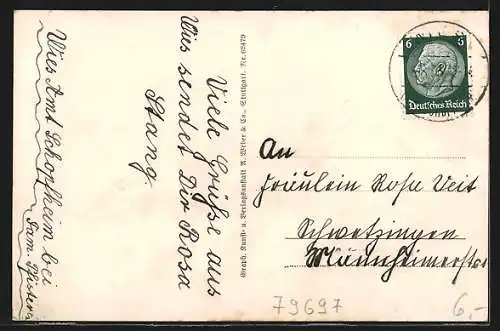 Viele Grüße aus
Wies sendet Dir Rosa
Stang
Wies Amt Schopfheim bei
Fam. Pfister
Graph. Kunst- u. Verlagsanstalt A. Weber & Co., Stuttgart. Nr. 62479
6 6
Deutsches Reich
An
Fräulein Rosa Veit
Schwetzingen
Mannheimerstr
79697
6,-